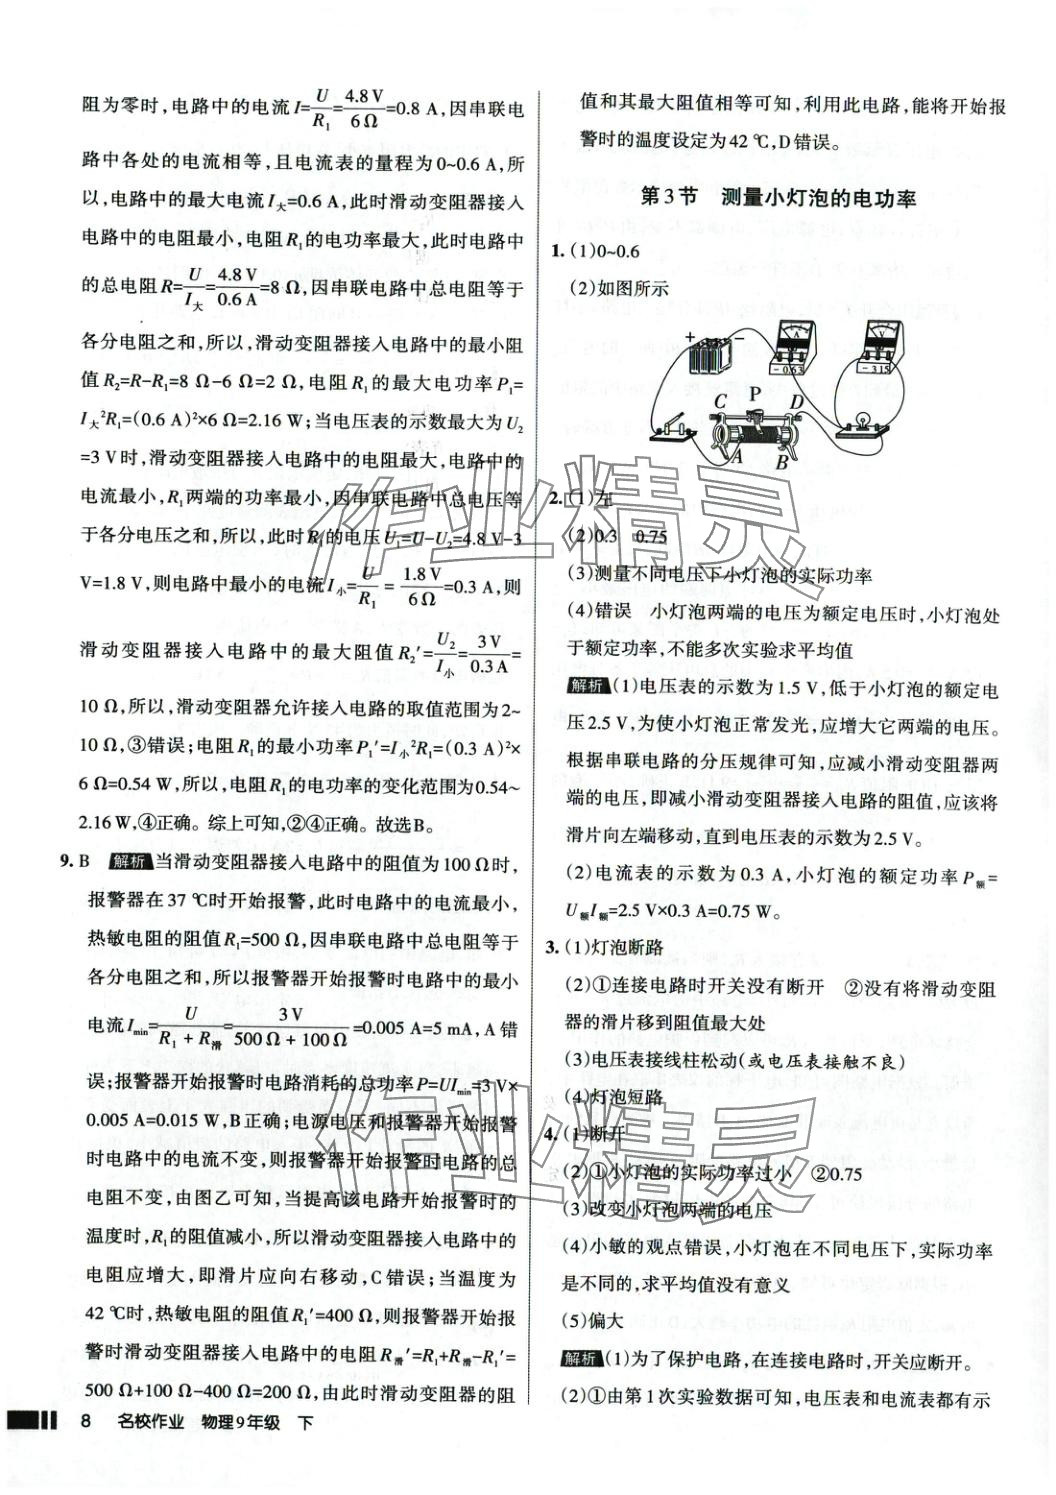 阻为零时,电路中的电流I=U/R₁=4.8 V/6 Ω=0.8 A,因串联电
路中各处的电流相等,且电流表的量程为0~0.6 A,所
以,电路中的最大电流I大=0.6 A,此时滑动变阻器接入
电路中的电阻最小,电阻R₁的电功率最大,此时电路中
的总电阻R=U/I大=4.8 V/0.6 A=8 Ω,因串联电路中总电阻等于
各分电阻之和,所以,滑动变阻器接入电路中的最小阻
值R₂=R-R₁=8 Ω-6 Ω=2 Ω,电阻R₁的最大电功率P₁=
I大²R₁=(0.6 A)²×6 Ω=2.16 W;当电压表的示数最大为U₂
=3 V时,滑动变阻器接入电路中的电阻最大,电路中的
电流最小,R₁两端的功率最小,因串联电路中总电压等
于各分电压之和,所以,此时R₁的电压U₁=U-U₂=4.8 V-3
V=1.8 V,则电路中最小的电流I小=U/R₁=1.8 V/6 Ω=0.3 A,则
滑动变阻器接入电路中的最大阻值R₂′=U₂/I小=3 V/0.3 A=
10 Ω,所以,滑动变阻器允许接入电路的取值范围为2~
10 Ω,③错误;电阻R₁的最小功率P₁′=I小²R₁=(0.3 A)²×
6 Ω=0.54 W,所以,电阻R₁的电功率的变化范围为0.54~
2.16 W,④正确。综上可知,②④正确。故选B。
9. B 解析 当滑动变阻器接入电路中的阻值为100 Ω时,
报警器在37 ℃时开始报警,此时电路中的电流最小,
热敏电阻的阻值R₁=500 Ω,因串联电路中总电阻等于
各分电阻之和,所以报警器开始报警时电路中的最小
电流Imin=U/(R₁+R滑)=3 V/(500 Ω+100 Ω)=0.005 A=5 mA,A错
误;报警器开始报警时电路消耗的总功率P=UImin=3 V×
0.005 A=0.015 W,B正确;电源电压和报警器开始报警
时电路中的电流不变,则报警器开始报警时电路的总
电阻不变,由图乙可知,当提高该电路开始报警时的
温度时,R₁的阻值减小,所以滑动变阻器接入电路中的
电阻应增大,即滑片应向右移动,C错误;当温度为
42 ℃时,热敏电阻的阻值R₁′=400 Ω,则报警器开始报
警时滑动变阻器接入电路中的电阻R滑′=R₁+R滑-R₁′=
500 Ω+100 Ω-400 Ω=200 Ω,由此时滑动变阻器的阻
8 名校作业 物理9年级 下
值和其最大阻值相等可知,利用此电路,能将开始报
警时的温度设定为42 ℃,D错误。
第3节 测量小灯泡的电功率
1. (1)0~0.6
(2)如图所示
+ −
A
V
- 0.63
- 3 15
C P D
A B
2. (1)左
(2)0.3 0.75
(3)测量不同电压下小灯泡的实际功率
(4)错误 小灯泡两端的电压为额定电压时,小灯泡处
于额定功率,不能多次实验求平均值
解析 (1)电压表的示数为1.5 V,低于小灯泡的额定电
压2.5 V,为使小灯泡正常发光,应增大它两端的电压。
根据串联电路的分压规律可知,应减小滑动变阻器两
端的电压,即减小滑动变阻器接入电路的阻值,应该将
滑片向左端移动,直到电压表的示数为2.5 V。
(2)电流表的示数为0.3 A,小灯泡的额定功率P额=
U额I额=2.5 V×0.3 A=0.75 W。
3. (1)灯泡断路
(2)①连接电路时开关没有断开 ②没有将滑动变阻
器的滑片移到阻值最大处
(3)电压表接线柱松动(或电压表接触不良)
(4)灯泡短路
4. (1)断开
(2)①小灯泡的实际功率过小 ②0.75
(3)改变小灯泡两端的电压
(4)小敏的观点错误,小灯泡在不同电压下,实际功率
是不同的,求平均值没有意义
(5)偏大
解析 (1)为了保护电路,在连接电路时,开关应断开。
(2)①由第1次实验数据可知,电压表和电流表都有示
作业精灵
作业精灵